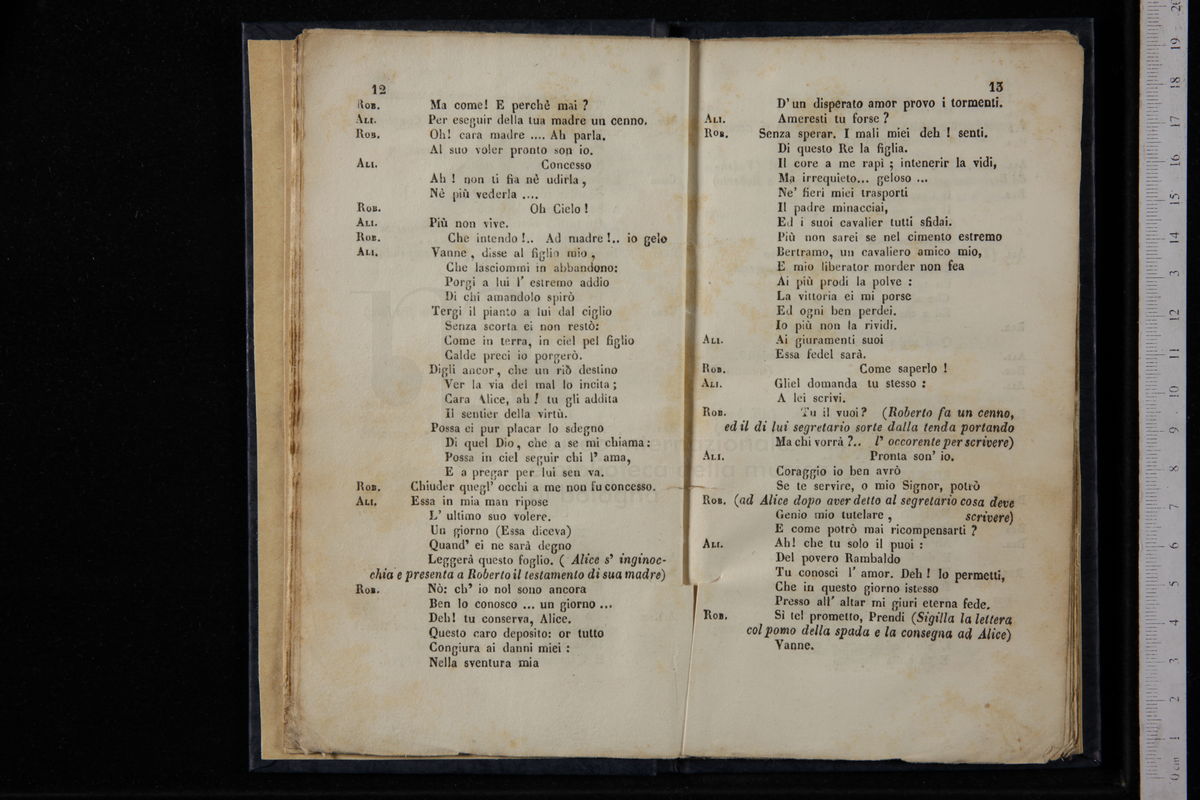 12
Rob. Ma come! E perchè mai ?
Ali. Per eseguir della tua madre un cenno.
Rob. Oh! cara madre .... Ah parla.
Al suo voler pronto son io.
Ali. Concesso
Ah ! non ti fia nè udirla ,
Nè più vederla ....
Rob. Oh Cielo !
Ali. Più non vive.
Rob. Che intendo !.. Ad madre !.. io gelo
Ali. Vanne , disse al figlio mio ,
Che lasciommi in abbandono:
Porgi a lui l' estremo addio
Di chi amandolo spirò
Tergi il pianto a lui dal ciglio
Senza scorta ei non restò:
Come in terra, in ciel pel figlio
Calde preci io porgerò.
Digli ancor, che un riò destino
Ver la via del mal lo incita ;
Cara Alice, ah ! tu gli addita
Il sentier della virtù.
Possa ei pur placar lo sdegno
Di quel Dio, che a se mi chiama:
Possa in ciel seguir chi l' ama,
E a pregar per lui sen va.
Rob. Chiuder quegl' occhi a me non fu concesso.
Ali. Essa in mia man ripose
L' ultimo suo volere.
Un giorno (Essa diceva)
Quand' ei ne sarà degno
Leggerà questo foglio. ( Alice s' inginoc-
chia e presenta a Roberto il testamento di sua madre)
Rob. Nò: ch' io nol sono ancora
Ben lo conosco ... un giorno ...
Deh! tu conserva, Alice.
Questo caro deposito: or tutto
Congiura ai danni miei :
Nella sventura mia
13
D' un disperato amor provo i tormenti.
Ali. Ameresti tu forse ?
Rob. Senza sperar. I mali miei deh ! senti.
Di questo Re la figlia.
Il core a me rapì ; intenerir la vidi,
Ma irrequieto... geloso ...
Ne' fieri miei trasporti
Il padre minacciai,
Ed i suoi cavalier tutti sfidai.
Più non sarei se nel cimento estremo
Bertramo, un cavaliero amico mio,
E mio liberator morder non fea
Ai più prodi la polve :
La vittoria ei mi porse
Ed ogni ben perdei.
Io più non la rividi.
Ali. Ai giuramenti suoi
Essa fedel sarà.
Rob. Come saperlo !
Ali. Gliel domanda tu stesso :
A lei scrivi.
Rob. Tu il vuoi ? (Roberto fa un cenno,
ed il di lui segretario sorte dalla tenda portando
Ma chi vorrà ?.. l' occorente per scrivere)
Ali. Pronta son' io.
Coraggio io ben avrò
Se te servire, o mio Signor, potrò
Rob. (ad Alice dopo aver detto al segretario cosa deve
Genio mio tutelare , scrivere)
E come potrò mai ricompensarti ?
Ali. Ah! che tu solo il puoi :
Del povero Rambaldo
Tu conosci l' amor. Deh ! lo permetti,
Che in questo giorno istesso
Presso all' altar mi giuri eterna fede.
Rob. Si tel prometto, Prendi (Sigilla la lettera
col pomo della spada e la consegna ad Alice)
Vanne.